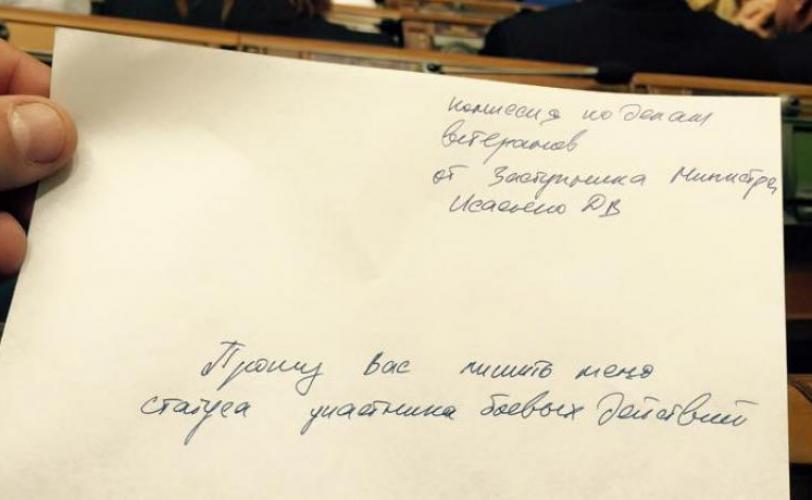 комиссия по делам
ветеранов
от Заступника Министра
Исаенко ДВ
Прошу вас лишить меня
статуса участника боевых действий